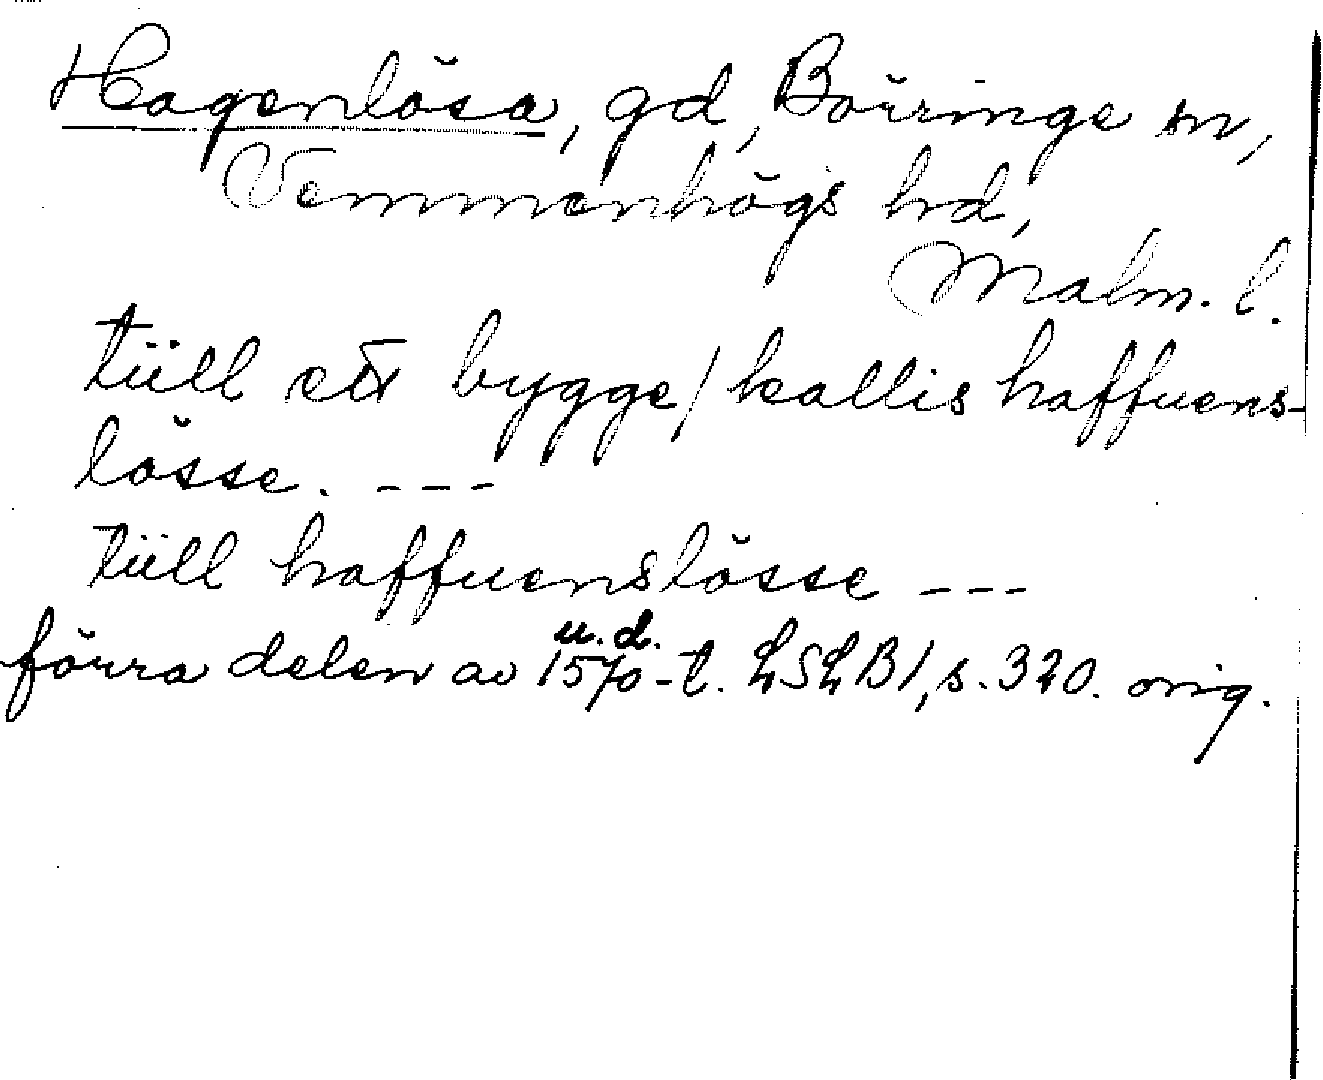 Hagenlösa, gd, Böringe sn,
Vemmenhögs hd,
Malm. l.
tüll ett bygge/ kallis haffuens-
lösse. ---
tüll haffuenslösse ---
u. d.
förra delen av 1570-t. LSLB1, s. 320. orig.